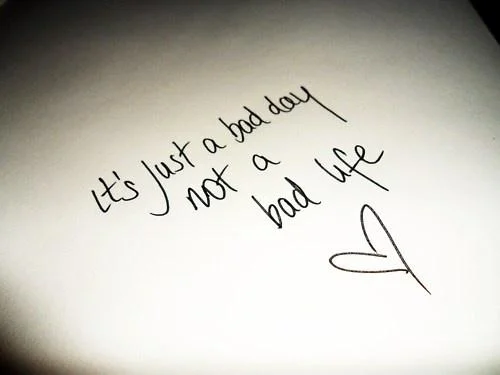 It's just a bad day
not a
bad life